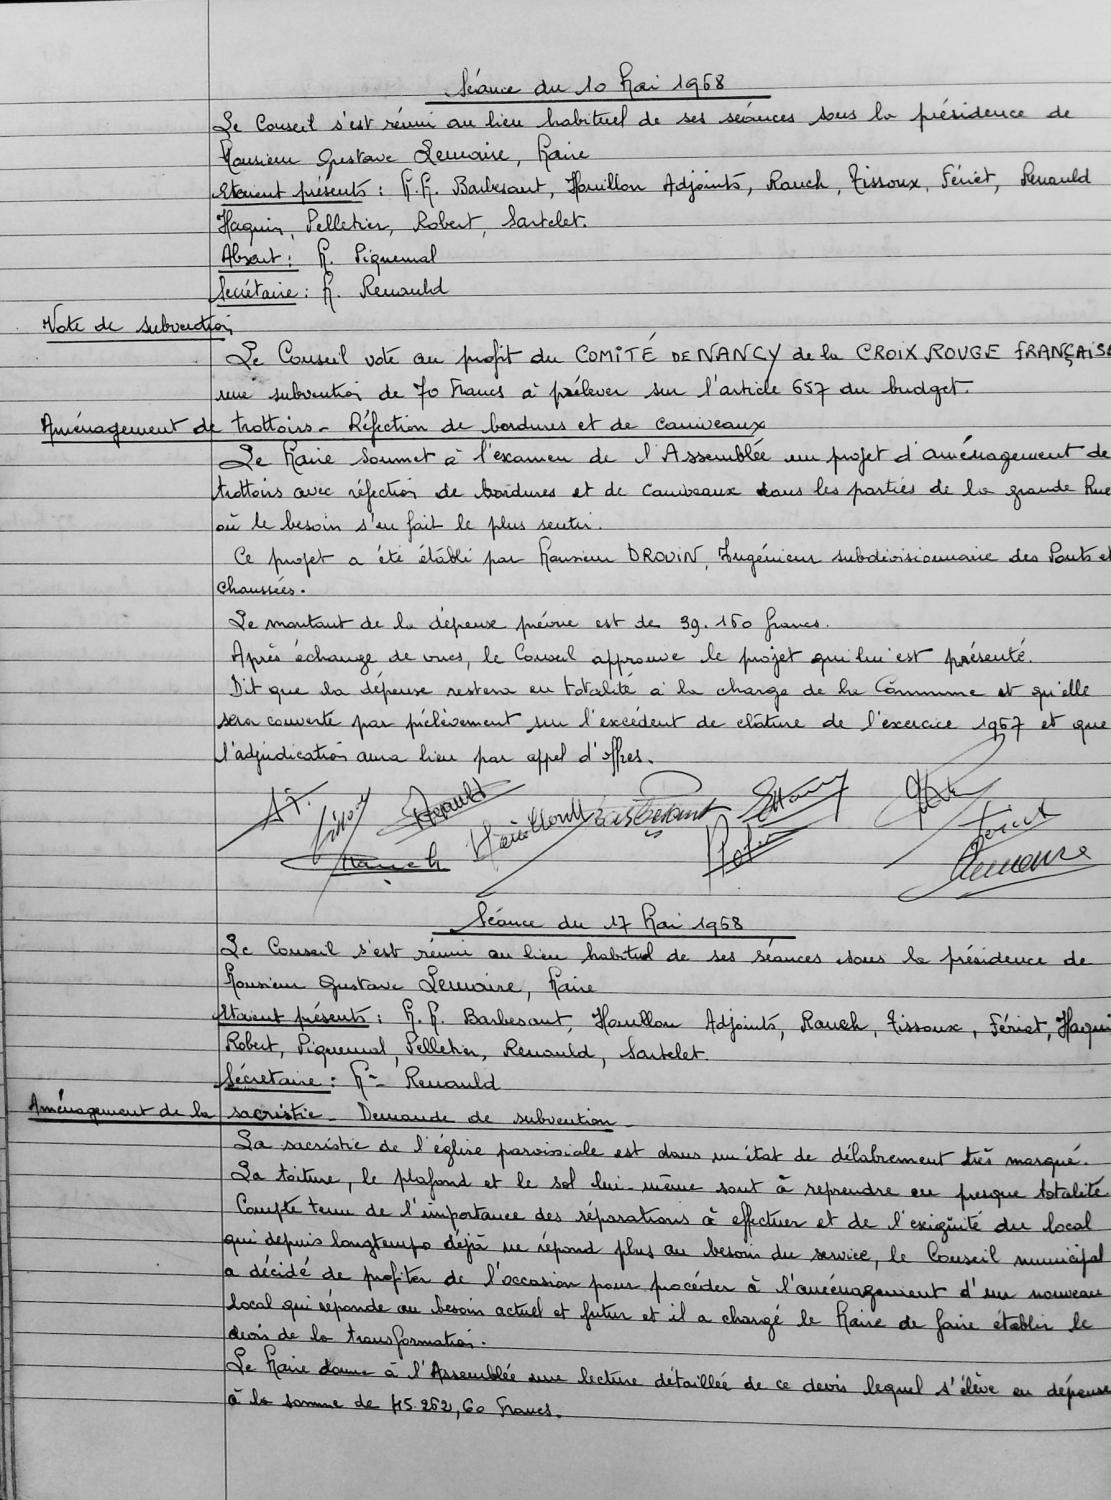 Séance du 10 Mai 1968
Le Conseil s'est réuni au lieu habituel de ses séances sous la présidence de
Monsieur Gustave Lemoire, Maire
Etaient présents : M.M. Barbesant, Houillon Adjoints, Rauch, Tissoux, Fériet, Renauld
Haquin, Pelletier, Robert, Sartelet.
Absent : M. Piquemal
Secrétaire : M. Renauld
Vote de subvention
Le Conseil vote au profit du COMITÉ DE NANCY de la CROIX ROUGE FRANÇAISE
une subvention de 70 francs à prélever sur l'article 657 du budget.
Aménagement de trottoirs - Réfection de bordures et de caniveaux
Le Maire soumet à l'examen de l'Assemblée un projet d'aménagement de
trottoirs avec réfection de bordures et de caniveaux dans les parties de la grande Rue
où le besoin s'en fait le plus sentir.
Ce projet a été établi par Monsieur DROUIN, Ingénieur subdivisionnaire des Ponts et
chaussées.
Le montant de la dépense prévue est de 39.150 francs.
Après échange de vues, le Conseil approuve le projet qui lui est présenté.
Dit que la dépense restera en totalité à la charge de la Commune et qu'elle
sera couverte par prélèvement sur l'excédent de clôture de l'exercice 1967 et que
l'adjudication aura lieu par appel d'offres.
Rauch Houillon Barbesant
Lemoire
Séance du 17 Mai 1968
Le Conseil s'est réuni au lieu habituel de ses séances sous la présidence de
Monsieur Gustave Lemoire, Maire
Etaient présents : M.M. Barbesant, Houillon Adjoints, Rauch, Tissoux, Fériet, Haquin
Robert, Piquemal, Pelletier, Renauld, Sartelet.
Sécretaire : Mr Renauld
Aménagement de la sacristie - Demande de subvention -
La sacristie de l'église paroissiale est dans un état de délabrement très marqué.
La toiture, le plafond et le sol lui-même sont à reprendre en presque totalité
Compte tenu de l'importance des réparations à effectuer et de l'exigüité du local
qui depuis longtemps déjà ne répond plus au besoin du service, le Conseil municipal
a décidé de profiter de l'occasion pour procéder à l'aménagement d'un nouveau
local qui réponde au besoin actuel et futur et il a chargé le Maire de faire établir le
devis de la transformation.
Le Maire donne à l'Assemblée une lecture détaillée de ce devis lequel s'élève en dépense
à la somme de 45.262,60 francs.